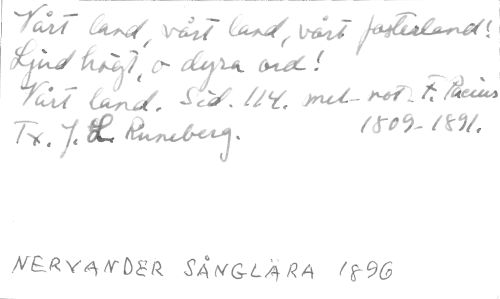 Vårt land, vårt land, vårt fosterland!
Ljud högt, o dyra ord!
Vårt land. Sid. 114. mel- not- F. Pacius
Tx. J. L. Runeberg. 1809-1891.
NERVANDER SÅNGLÄRA 1896